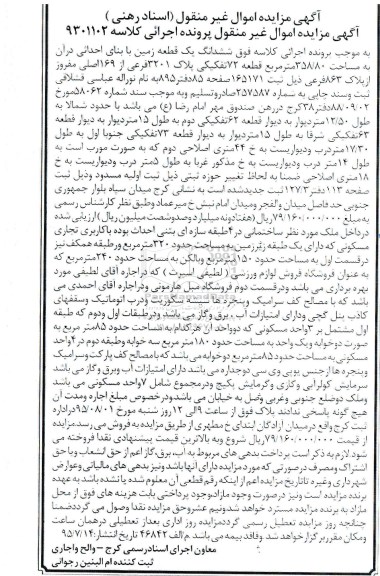 آگهی مزایده اموال غیر منقول (اسناد رهنی)
آگهی مزایده اموال غیر منقول پرونده اجرائی کلاسه ۹۳۰۱۱۰۲
به موجب پرونده اجرائی کلاسه فوق ششدانگ یک قطعه زمین با بنای احداثی درآن
به مساحت ۳۵۸/۸۰مترمربع قطعه ۷۲تفکیکی پلاک ۳۲۰۱فرعی از ۱۶۹اصلی مفروز
ازپلاک ۸۶۳فرعی ذیل ثبت ۱۶۵۱۷۱صفحه ۸۵دفتر۸۹۵به نام نوراله عباسی قشلاقی
ثبت وسند چاپی به شماره ۲۵۷۵۸۷صادروتسلیم وبه موجب سند شماره ۵۸۰۶۲مورخ
۸۸/۰۹/۰۲دفتر۳۸کرج دررهن صندوق مهر امام رضا (ع) می باشد با حدود شمالا به
طول ۱۲/۵۰متردیوار به دیوار قطعه ۶۲تفکیکی دوم به طول ۱۵متردیوار به دیوار قطعه
۶۳تفکیکی شرقا به طول ۱۵متردیوار به دیوار قطعه ۷۳تفکیکی جنوبا اول به طول
۱۷/۳۰متردرب ودیواریست به خ ۴۴متری اصلاحی دوم که به صورت مورب است به
طول ۱۴متر درب ودیواریست به خ مذکور غربا به طول ۵متر درب ودیواریست به خ
۱۸متری اصلاحی ضمنا به لحاظ تغییر حوزه ثبتی ذیل ثبت اولیه مسدود وذیل ثبت
صفحه ۱۱۳دفتر۱۲۷/۳ثبت جدیدشده است به نشانی کرج میدان سپاه بلوار جمهوری
جنوبی حد فاصل میدان والفجر ومیدان امام نبش خ میرعماد وطبق نظر کارشناس رسمی
به مبلغ ۷۹/۱۶۰/۰۰۰/۰۰۰ریال (هفتادونه میلیارد وصدوشصت میلیون ریال) ارزیابی شده
درداخل ملک مورد نظر ساختمانی در۴طبقه سازه ای بتنی احداث بوده باکاربری تجاری
مسکونی که دارای یک طبقه زیرزمین به مساحت حدود ۳۲۰مترمربع ورطبقه همکف نیز
درقسمت اول به مساحت حدود ۱۵۰مترمربع وبالکن به مساحت حدود ۲۴۰مترمربع که
به عنوان فروشگاه فروش لوازم ورزشی (لطیفی اسپرت) که دراجاره آقای لطیفی مورد
بهره برداری می باشد ودرقسمت دوم فروشگاه مبل هارمونی ودراجاره آقای احمدی می
باشد که با مصالح کف سرامیک وپنجره ها سپید سکوریت ودرب اتوماتیک وسقفهای
کاذب پنل گچی ودارای امتیازات آب، برق وگاز می باشد ودرطبقات اول ودوم که طبقه
اول مشتمل بر ۳واحد مسکونی که دوواحد آن هرکدام به مساحت حدود ۸۵متر مربع به
صورت دوخوابه ویک واحد به مساحت حدود ۱۸۰متر مربع سه خوابه وطبقه دوم در۴واحد
مسکونی به مساحت حدود ۸۵مترمربع دوخوابه می باشد که بامصالح کف پارکت وسرامیک
وپنجره ها از جنس یوپی وی سی دوجداره می باشد دارای امتیازات آب وبرق وگاز می باشد
سرمایش کولرآبی وگازی وگرمایش پکیج ودرمجموع شامل ۷واحد مسکونی می باشد
وملک دوضلع جنوبی وغربی وصل به خیابان می باشدودرخصوص مبلغ اجاره ومدت آن
هیچ گونه پاسخی ندادند پلاک فوق از ساعت ۹الی ۱۲روز شنبه مورخ ۹۵/۰۸/۰۱دراداره
ثبت کرج واقع درمیدان آزادگان ابتدای خ مطهری از طریق مزایده به فروش می رسد.مزایده
از قیمت ۷۹/۱۶۰/۰۰۰/۰۰۰ریال شروع وبه بالاترین قیمت پیشنهادی نقدا فروخته می
شود.لازم به ذکر است پرداخت بدهی های مربوط به آب،برق،گاز اعم از حق انشعاب ویا حق
اشتراک ومصرف درصورتی که مورد مزایده دارای آنها باشد ونیز بدهی های مالیاتی وعوارض
شهرداری وغیره تاتاریخ مزایده اعم از اینکه رقم قطعی آن معلوم شده یا نشده باشد به عهده
برنده مزایده است ونیز درصورت وجود مازاد وجوه پرداختی بابت هزینه های فوق از محل
مازاد به برنده مزایده مسترد خواهد شدونیم عشروحق مزایده نقدا وصول می گرددضمنا
چنانچه روز مزایده تعطیل رسمی گرددمزایده روز اداری بعداز تعطیلی درهمان ساعت
ومکان مقرر برگزار خواهد شد. وفاقد بیمه می باشد. م/الف ۴۶۸۴۲ تاریخ انتشار:۹۵/۷/۱۴
معاون اجرای اسناد رسمی کرج – والح واجاری
ثبت کننده ام البنین رجوانی